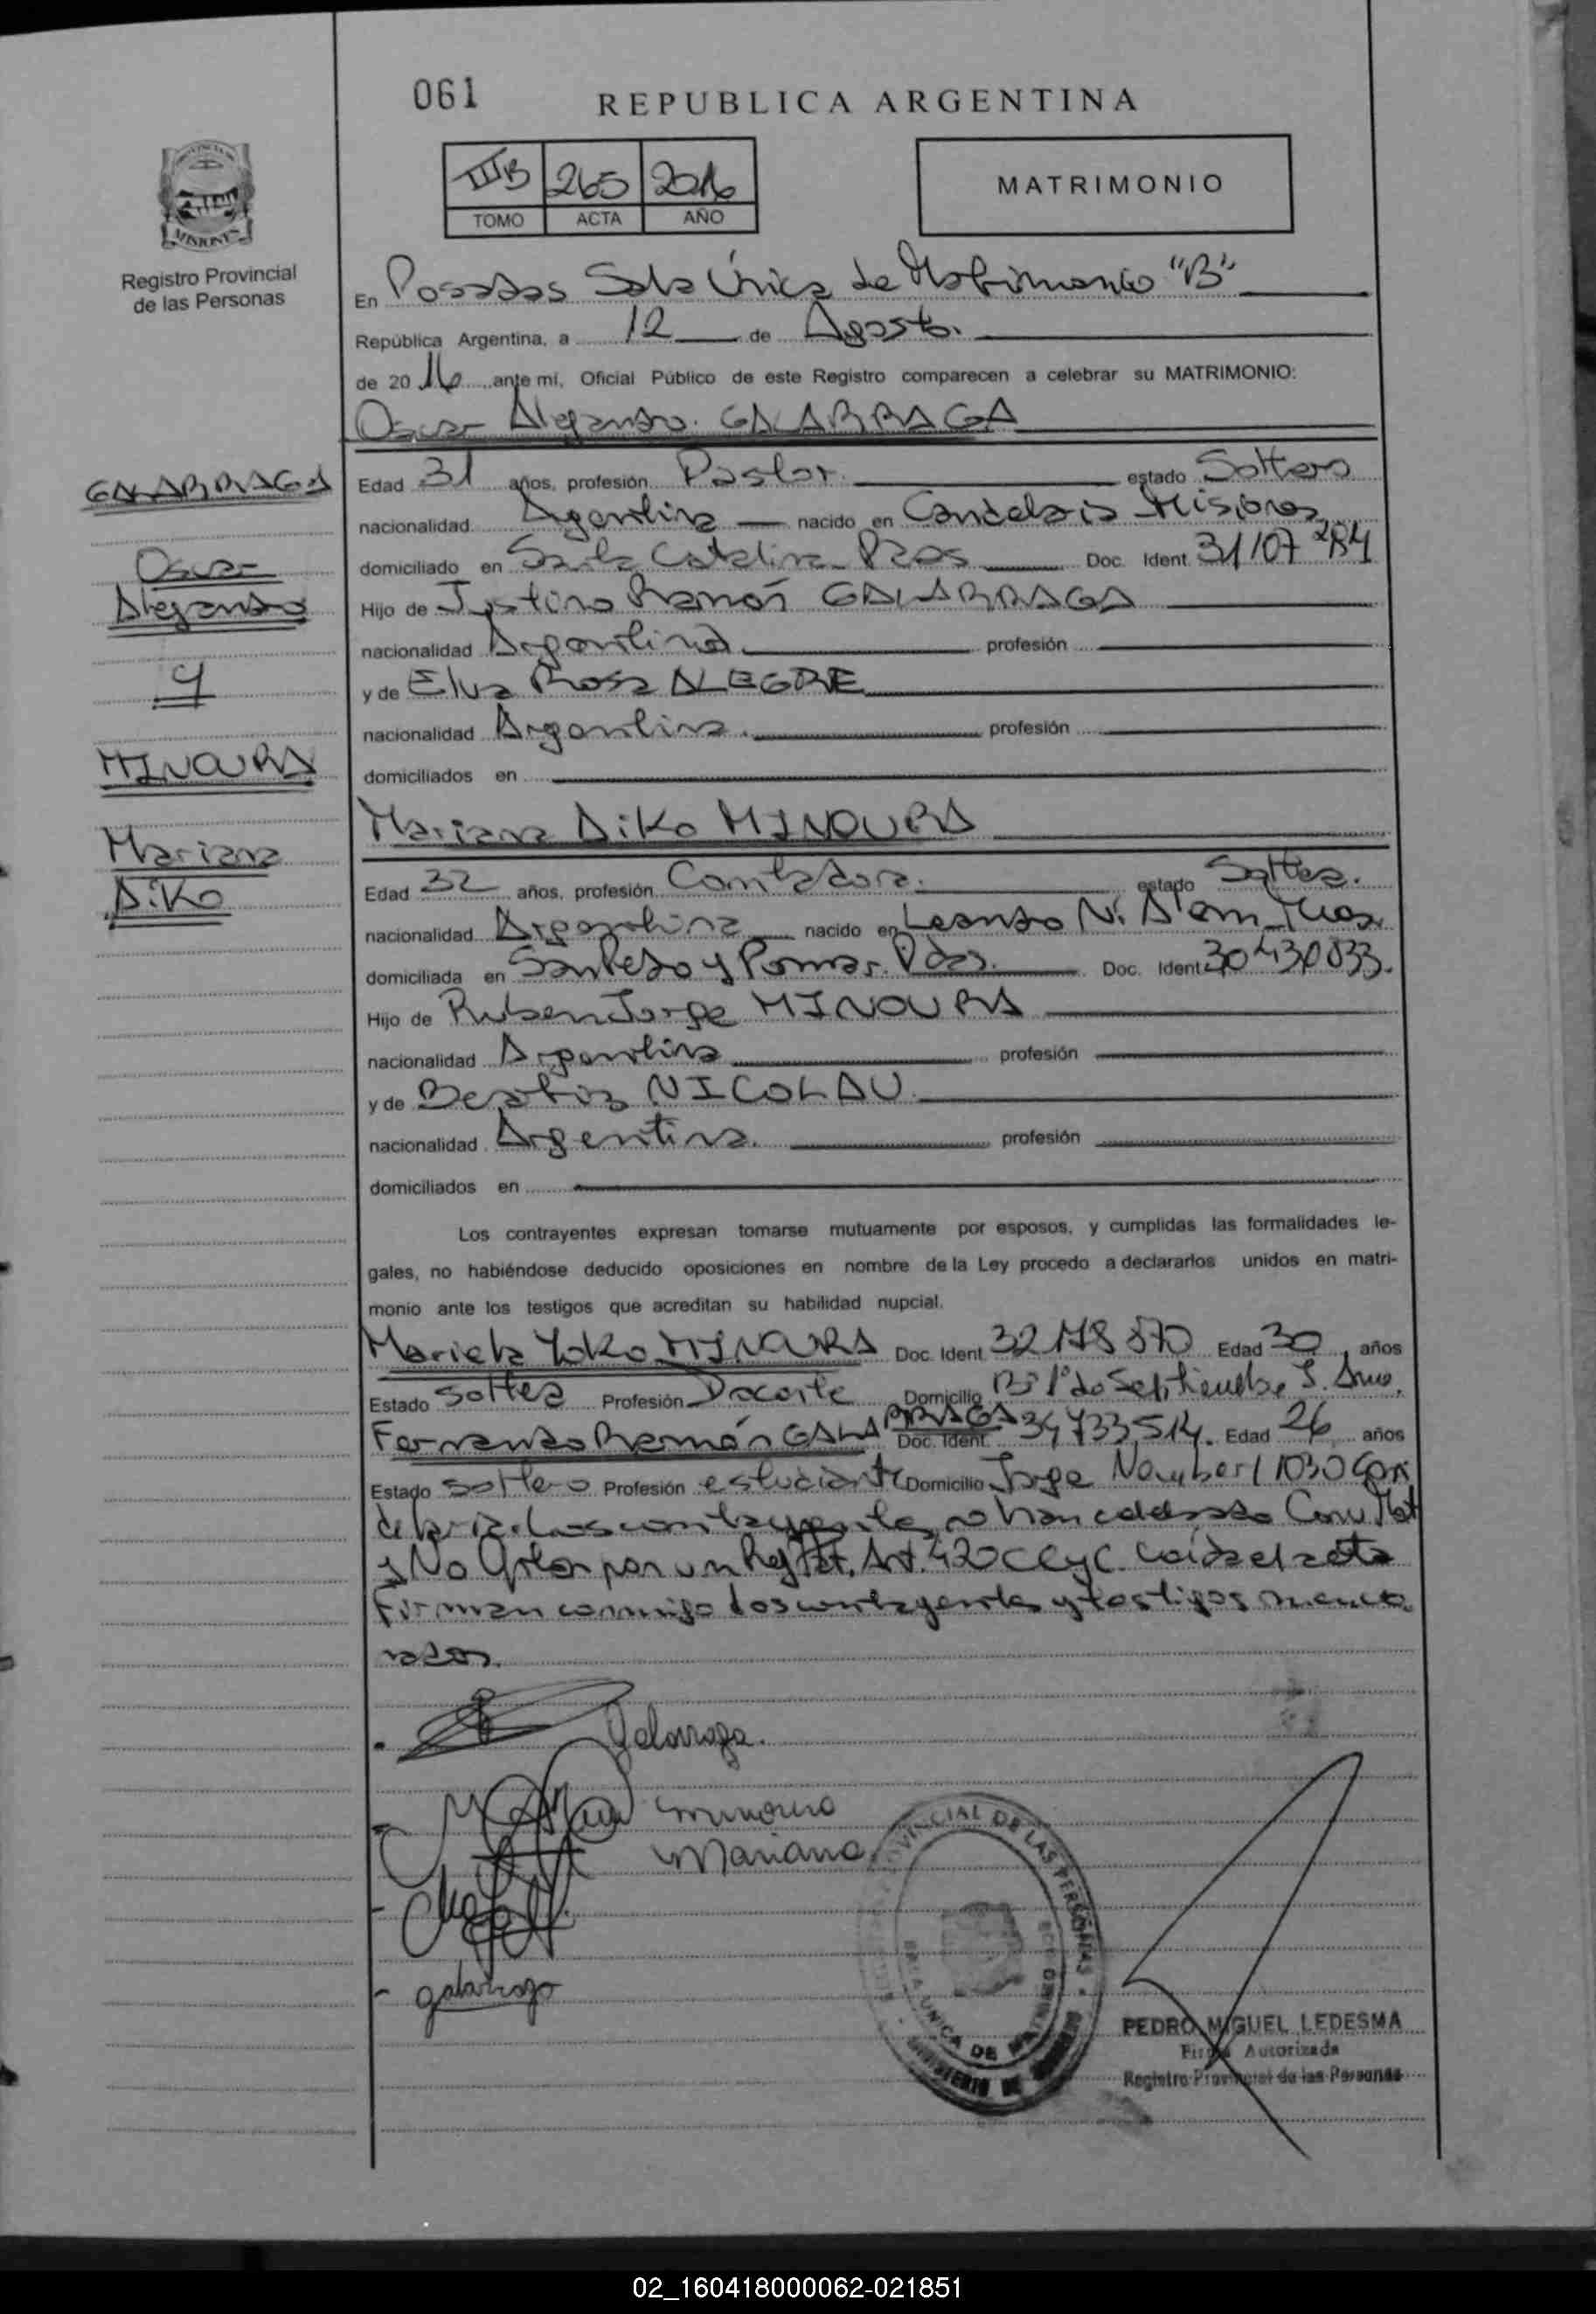 061
REPUBLICA ARGENTINA
IIIB 265 2016
TOMO ACTA AÑO
MATRIMONIO
MISIONES
Registro Provincial
de las Personas
En Posadas Sala Única de Matrimonio "B"
República Argentina, a 12 de Agosto.
de 20 16 ante mi, Oficial Público de este Registro comparecen a celebrar su MATRIMONIO:
Oscar Alejandro GALARRAGA
GALARRAGA
Oscar
Alejandro
y
MINOURA
Mariana
Aiko
Edad 31 años, profesión Pastor. estado Soltero
nacionalidad Argentina nacido en Candelaria Misiones
domiciliado en Santa Catalina Pdas Doc. Ident. 31107284
Hijo de Justino Ramón GALARRAGA
nacionalidad Argentina profesión
y de Elva Rosa ALEGRE
nacionalidad Argentina. profesión
domiciliados en
Mariana Aiko MINOURA
Edad 32 años, profesión Contadora. estado Soltera.
nacionalidad Argentina nacido en Leandro N. Alem Mnes.
domiciliada en y Doc. Ident 30430833.
Hijo de Ruben Jorge MINOURA
nacionalidad Argentina profesión
y de Beatriz NICOLAU
nacionalidad Argentina. profesión
domiciliados en
Los contrayentes expresan tomarse mutuamente por esposos, y cumplidas las formalidades le-
gales, no habiéndose deducido oposiciones en nombre de la Ley procedo a declararlos unidos en matri-
monio ante los testigos que acreditan su habilidad nupcial.
Mariela Yoko MINOURA Doc. Ident. 32178570 Edad 30 años
Estado Soltera Profesión Docente Domicilio
Fernando Ramón GALARRAGA Doc. Ident. 34733514. Edad 26 años
Estado soltero Profesión estudiante Domicilio Jorge 1030
Los contrayentes no han celebrado Conv. Mat
y No Optan por un Reg Pat. Art. 420 CCyC. Leída el acta
Firman conmigo los contrayentes y testigos mencio
nados.
Galarraga.
Minoura
Mariana
galarraga
PROVINCIAL DE LAS PERSONAS
UNICA DE
MINISTERIO DE
PEDRO MIGUEL LEDESMA
Firma Autorizada
Registro Provincial de las Personas
02_160418000062-021851